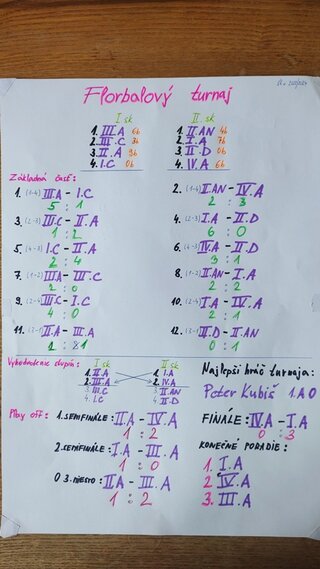 Florbalový turnaj
I.sk
II.sk
1. III.A 6b
2. III.C 3b
3. II.A 9b
4. I.C 0b
1. II.AN 4b
2. I.A 7b
3. II.D 0b
4. IV.A 6b
Základná časť:
1. (1-4) III.A - I.C
5 : 1
2. (1-4) II.AN - IV.A
2 : 3
3. (2-3) III.C - II.A
1 : 2
4. (2-3) I.A - II.D
6 : 0
5. (4-3) I.C - II.A
2 : 4
6. (4-3) IV.A - II.D
3 : 1
7. (1-2) III.A - III.C
2 : 0
8. (1-2) II.AN - I.A
2 : 2
9. (2-4) III.C - I.C
4 : 0
10. (2-4) I.A - IV.A
2 : 1
11. (3-1) II.A - III.A
12. (3-1) II.D - II.AN
0 : 1
Vyhodnotenie skupín:
I.sk
II.sk
1. II.A
2. III.A
3. III.C
4. I.C
1. I.A
2. IV.A
3. II.AN
4. II.D
Najlepší hráč turnaja:
Peter Kubiš I.A O
Play off: 1. SEMIFINÁLE: II.A - IV.A
1 : 2
2. SEMIFINÁLE: I.A - III.A
1 : 0
O 3. MIESTO: II.A - III.A
1 : 2
FINÁLE: IV.A - I.A
0 : 3
KONEČNÉ PORADIE:
1. I.A
2. IV.A
3. III.A